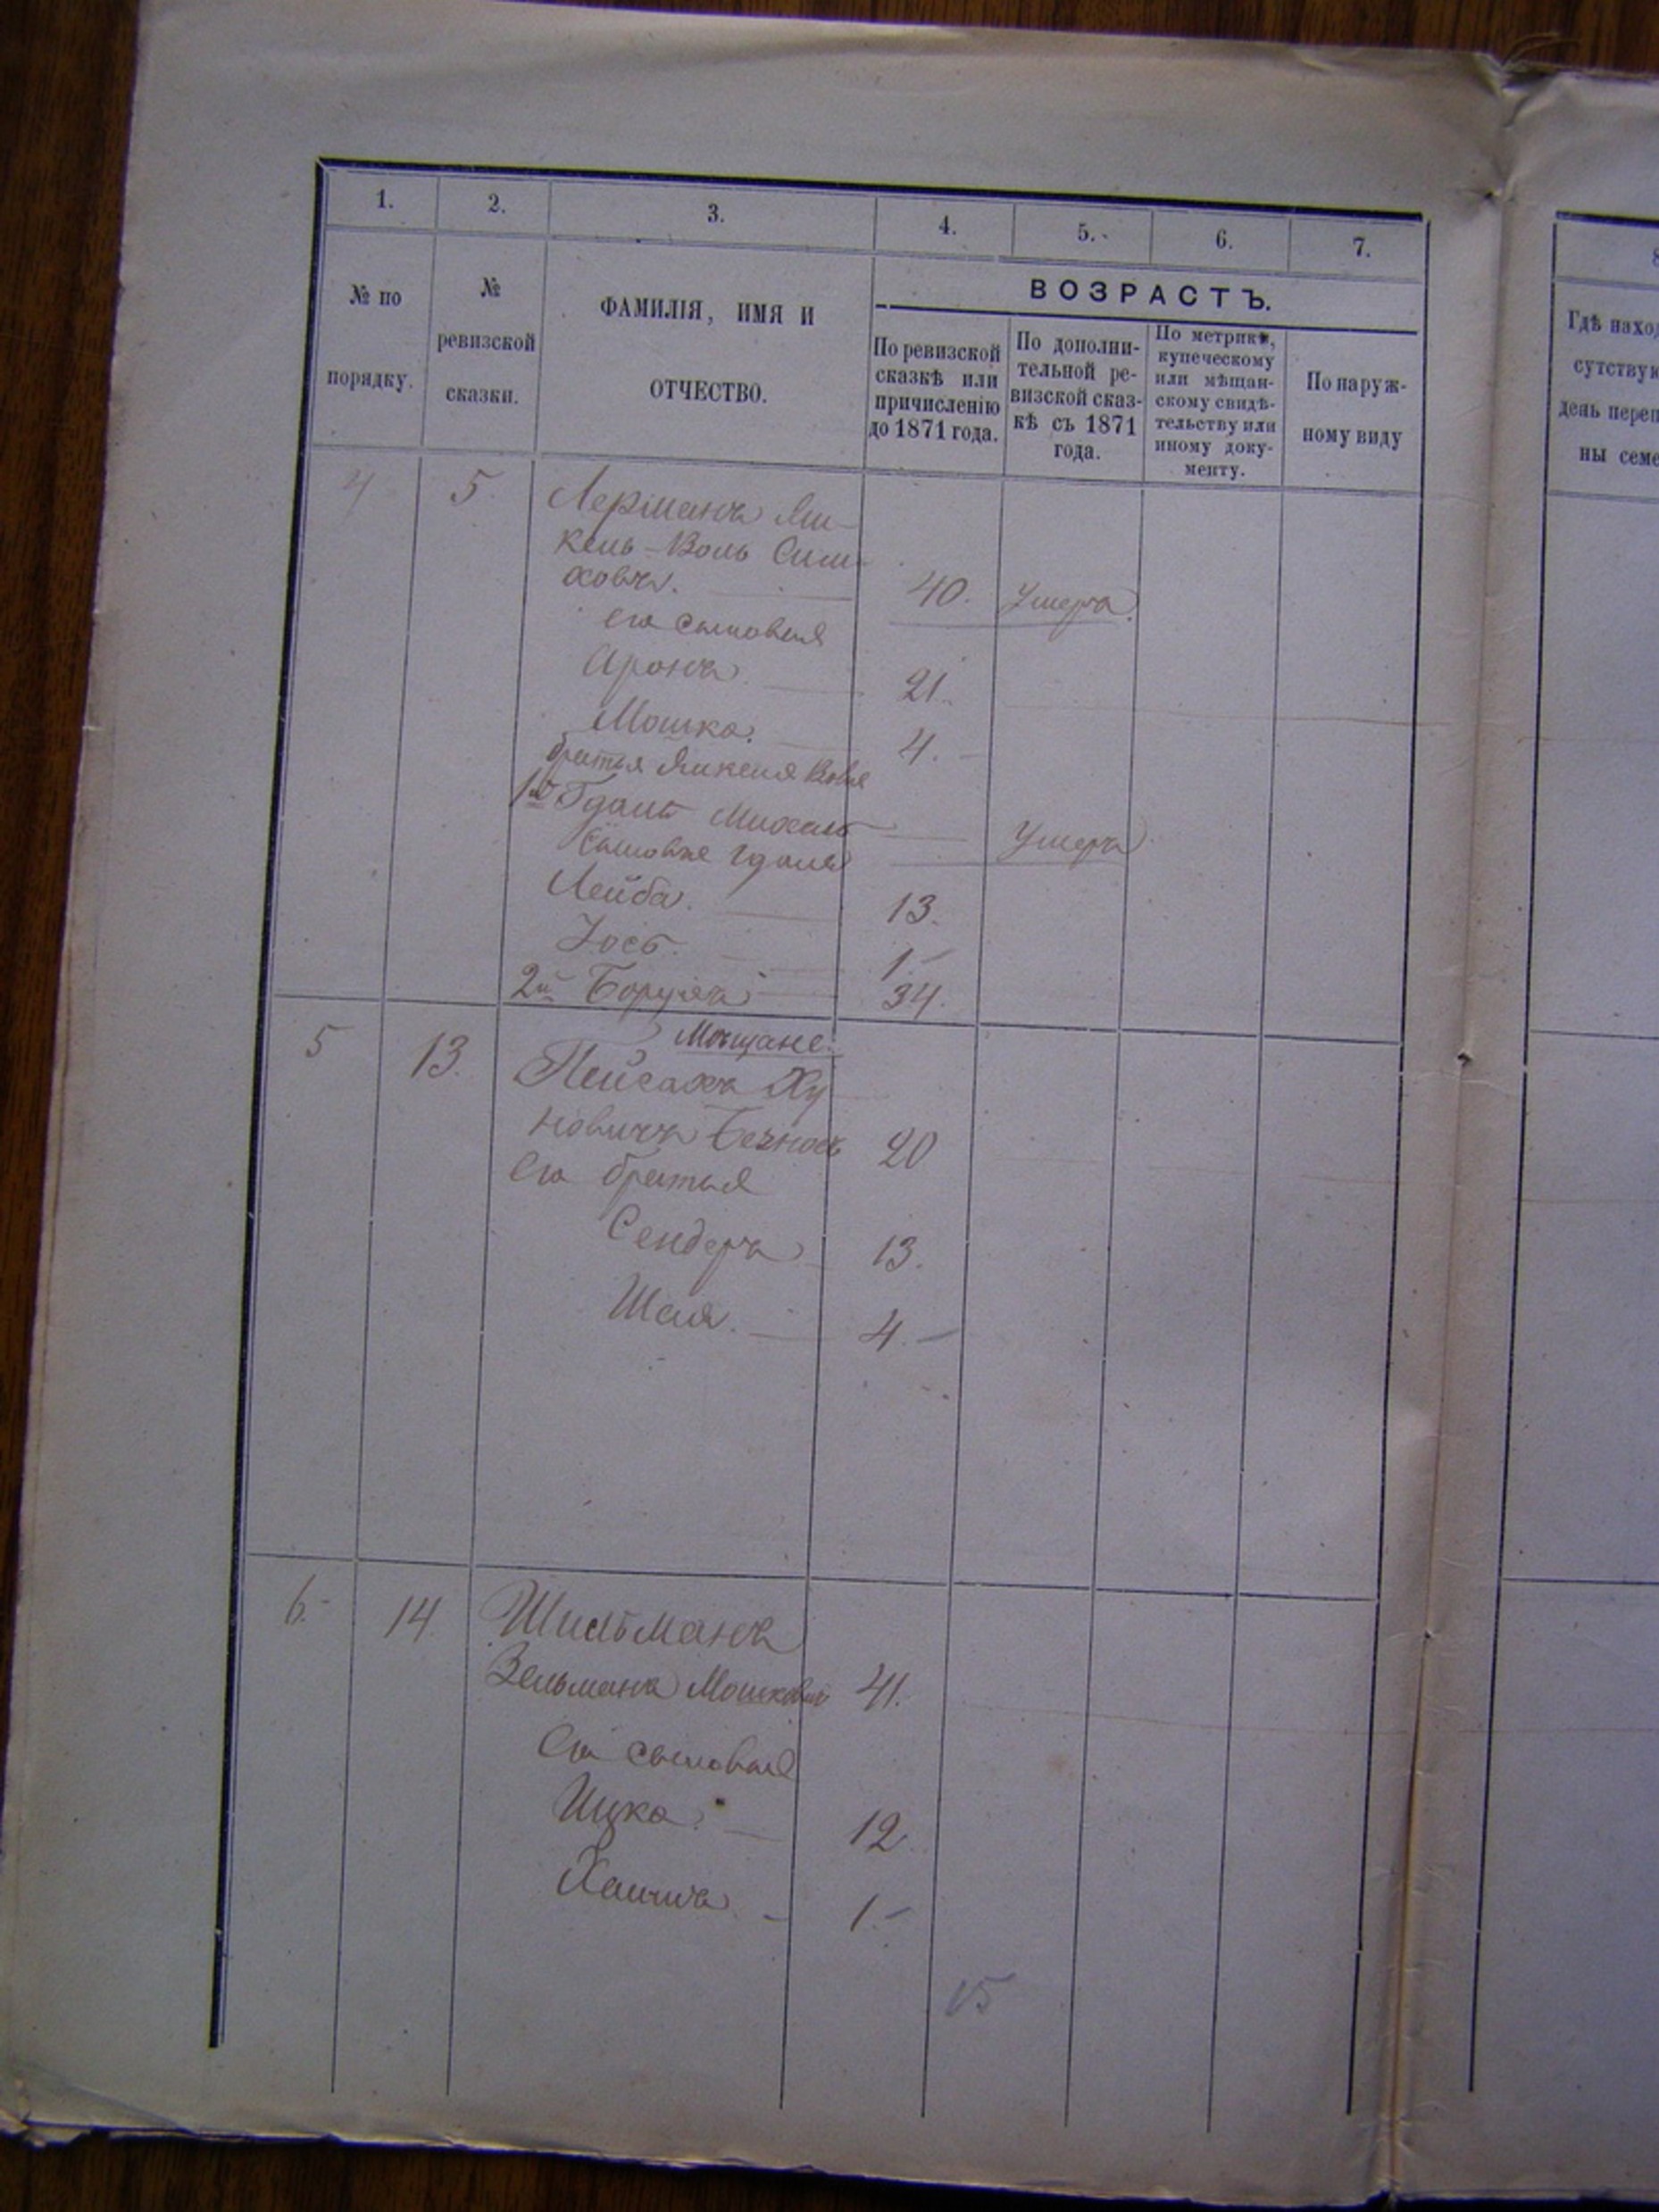 1. 2. 3. 4. 5. 6. 7.
№ по порядку.
№ ревизской сказки.
ФАМИЛІЯ, ИМЯ И
ОТЧЕСТВО.
ВОЗРАСТЪ.
По ревизской
сказкѣ или
причисленію
до 1871 года.
По дополни-
тельной ре-
визской сказ-
кѣ съ 1871
года.
По метрикѣ,
купеческому
или мѣщан-
скому свидѣ-
тельству или
иному доку-
менту.
По наруж-
ному виду
4 5. Лерманъ Ян-
кель-Воль Сим-
ховъ. 40. Умеръ.
его сыновья
Аронъ. 21.
Мошко. 4.
братья Янкеля Вовля
1й Гдаль Михаль Умеръ
Сыновья Гдаля
Лейба. 13.
Iось. 1.
2й Борухъ 34.
Мѣщане.
5 13. Пейсахъ Ху
новичъ 20
Его братья
Сендеръ 13.
Шая. 4.
6. 14. Шильманъ
Зельманъ Мошковъ 41.
Его сыновья
Ицко. 12.
Хаимъ 1.
15
Гдѣ наход
сутствую
день переп
ны семе